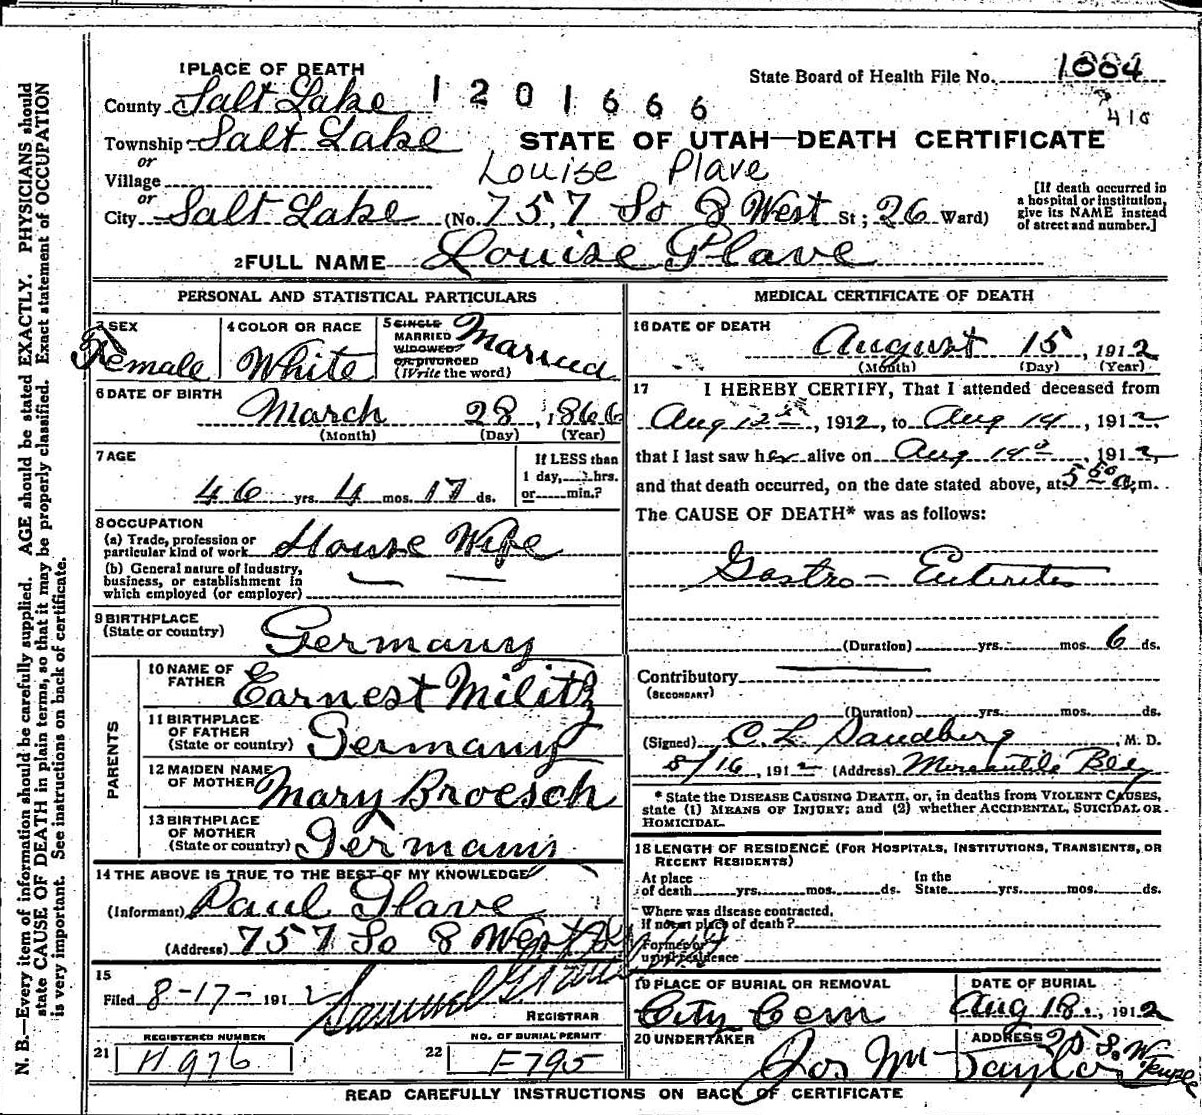 1 PLACE OF DEATH
State Board of Health File No. 1884
County Salt Lake 1201666
410
Township Salt Lake
STATE OF UTAH—DEATH CERTIFICATE
or
Village
Louise Plave
or
City Salt Lake (No. 757 So 8 West St; 26 Ward)
[If death occurred in
a hospital or institution,
give its NAME instead
of street and number.]
2 FULL NAME Louise Plave
PERSONAL AND STATISTICAL PARTICULARS
3 SEX
Female
4 COLOR OR RACE
White
5 SINGLE
MARRIED
WIDOWED
OR DIVORCED
(Write the word)
Married
6 DATE OF BIRTH
March 28, 1866
(Month) (Day) (Year)
7 AGE
46 yrs. 4 mos. 17 ds.
If LESS than
1 day, hrs.
or min.?
8 OCCUPATION
(a) Trade, profession or
particular kind of work House Wife
(b) General nature of industry,
business, or establishment in
which employed (or employer)
9 BIRTHPLACE
(State or country) Germany
PARENTS
10 NAME OF
FATHER Earnest Militz
11 BIRTHPLACE
OF FATHER
(State or country) Germany
12 MAIDEN NAME
OF MOTHER Mary Broesch
13 BIRTHPLACE
OF MOTHER
(State or country) Germany
14 THE ABOVE IS TRUE TO THE BEST OF MY KNOWLEDGE
(Informant) Paul Plave
(Address) 757 So 8 West
15
Filed 8-17- 1912 Samuel G.
REGISTRAR
REGISTERED NUMBER
21 H976
NO. OF BURIAL PERMIT
22 F795
MEDICAL CERTIFICATE OF DEATH
16 DATE OF DEATH
August 15, 1912
(Month) (Day) (Year)
17 I HEREBY CERTIFY, That I attended deceased from
Aug 12, 1912, to Aug 14, 1912,
that I last saw her alive on Aug 14, 1912,
and that death occurred, on the date stated above, at 5 50 a.m.
The CAUSE OF DEATH* was as follows:
Gastro-Enteritis
(Duration) yrs. mos. 6 ds.
Contributory
(SECONDARY)
(Duration) yrs. mos. ds.
(Signed) C. L. Sandberg, M. D.
8/16, 1912 (Address) Mercantile Bldg
* State the DISEASE CAUSING DEATH, or, in deaths from VIOLENT CAUSES,
state (1) MEANS OF INJURY; and (2) whether ACCIDENTAL, SUICIDAL OR
HOMICIDAL.
18 LENGTH OF RESIDENCE (FOR HOSPITALS, INSTITUTIONS, TRANSIENTS, OR
RECENT RESIDENTS)
At place
of death yrs. mos. ds.
In the
State yrs. mos. ds.
Where was disease contracted,
if not at place of death?
Former or
usual residence
19 PLACE OF BURIAL OR REMOVAL
City Cem
DATE OF BURIAL
Aug 18, 1912
20 UNDERTAKER
Jos Wm Taylor
ADDRESS 25 S. W. Temple
READ CAREFULLY INSTRUCTIONS ON BACK OF CERTIFICATE
N. B.—Every item of information should be carefully supplied. AGE should be stated EXACTLY. PHYSICIANS should
state CAUSE OF DEATH in plain terms, so that it may be properly classified. Exact statement of OCCUPATION
is very important. See instructions on back of certificate.